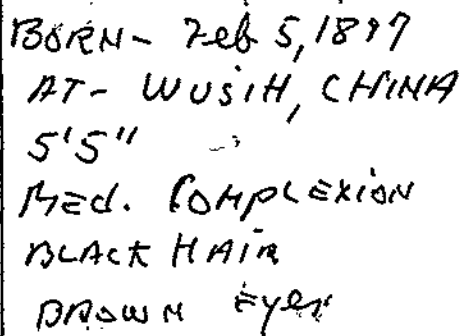 BORN - Feb 5, 1897
AT - WUSIH, CHINA
5'5"
MED. COMPLEXION
BLACK HAIR
BROWN Eyes